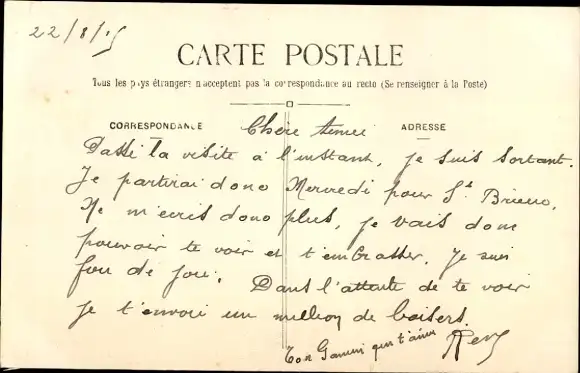 22/8/15
CARTE POSTALE
Tous les pays étrangers n'acceptent pas la correspondance au recto (Se renseigner à la Poste)
CORRESPONDANCE
ADRESSE
Chère
Passé la visite à l'instant, je suis sortant.
Je partirai donc Mercredi pour St Brieuc.
Ne m'écris donc plus, je vais donc
pouvoir te voir et t'embrasser. Je suis
fou de joie. Dans l'attente de te voir
je t'envoie un million de baisers.
Ton qui t'aime